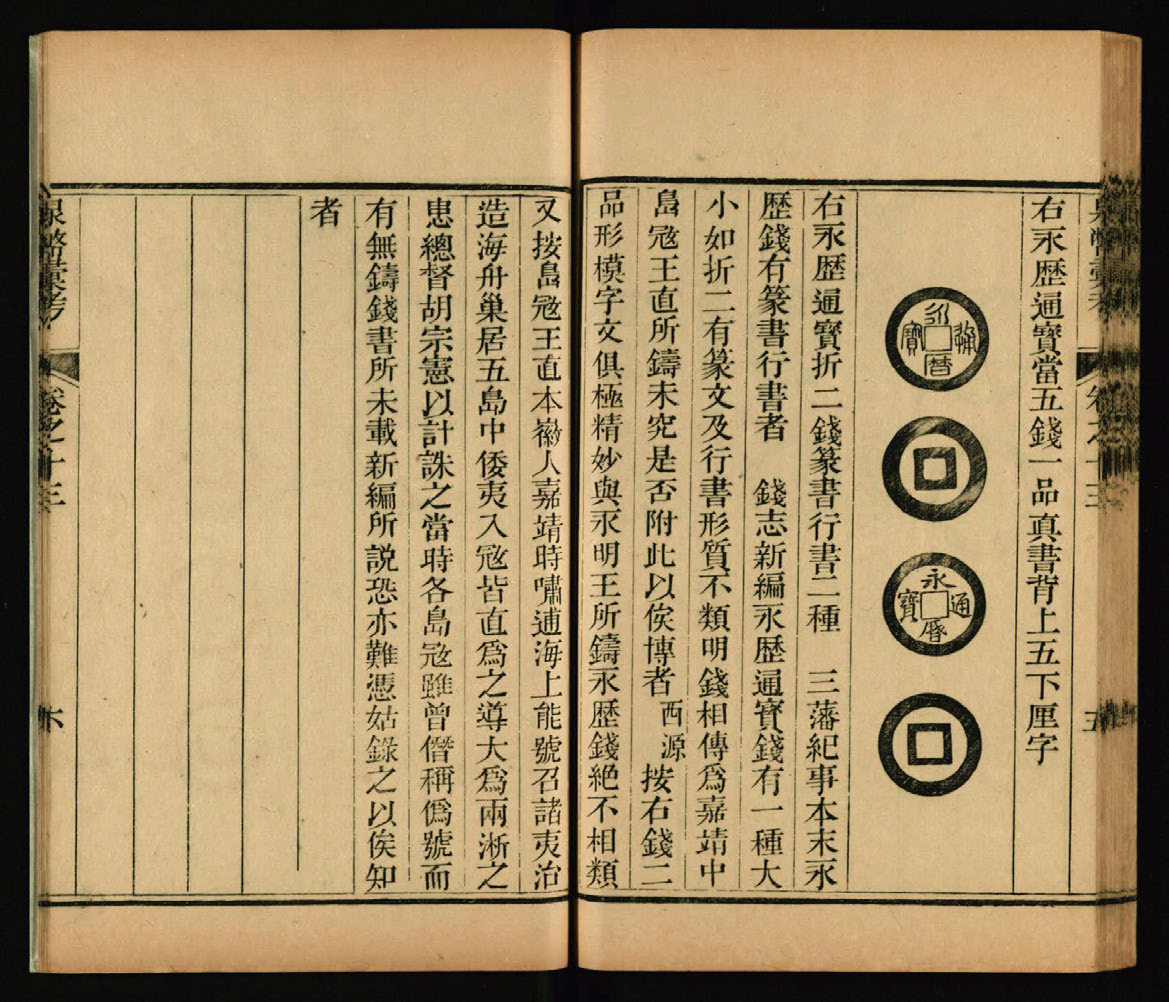 右永歴通寶當五錢一品真書背上五下厘字
永曆通寶
永曆通寶
右永歴通寶折二錢篆書行書二種　三藩紀事本末永
歴錢有篆書行書者　錢志新編永歴通寶錢有一種大
小如折二有篆文及行書形質不類明錢相傳爲嘉靖中
島宼王直所鑄未究是否附此以俟博者西源按右錢二
品形模字文俱極精妙與永明王所鑄永歴錢絶不相類
又按島宼王直本徽人嘉靖時嘯逋海上能號召諸夷治
造海舟巢居五島中倭夷入宼皆直爲之導大爲兩淅之
患總督胡宗憲以計誅之當時各島宼雖曾僭稱僞號而
有無鑄錢書所未載新編所説恐亦難憑姑錄之以俟知
者
泉幣彙考
卷之十三
六